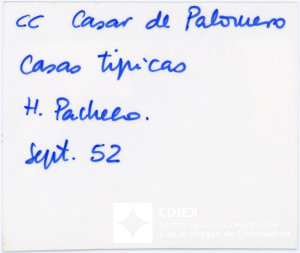 CC Casar de Palomero
Casas tipicas
H. Pacheco.
Sept. 52
CDIEX
Centro de la Documentación
y de la Imagen de Extremadura